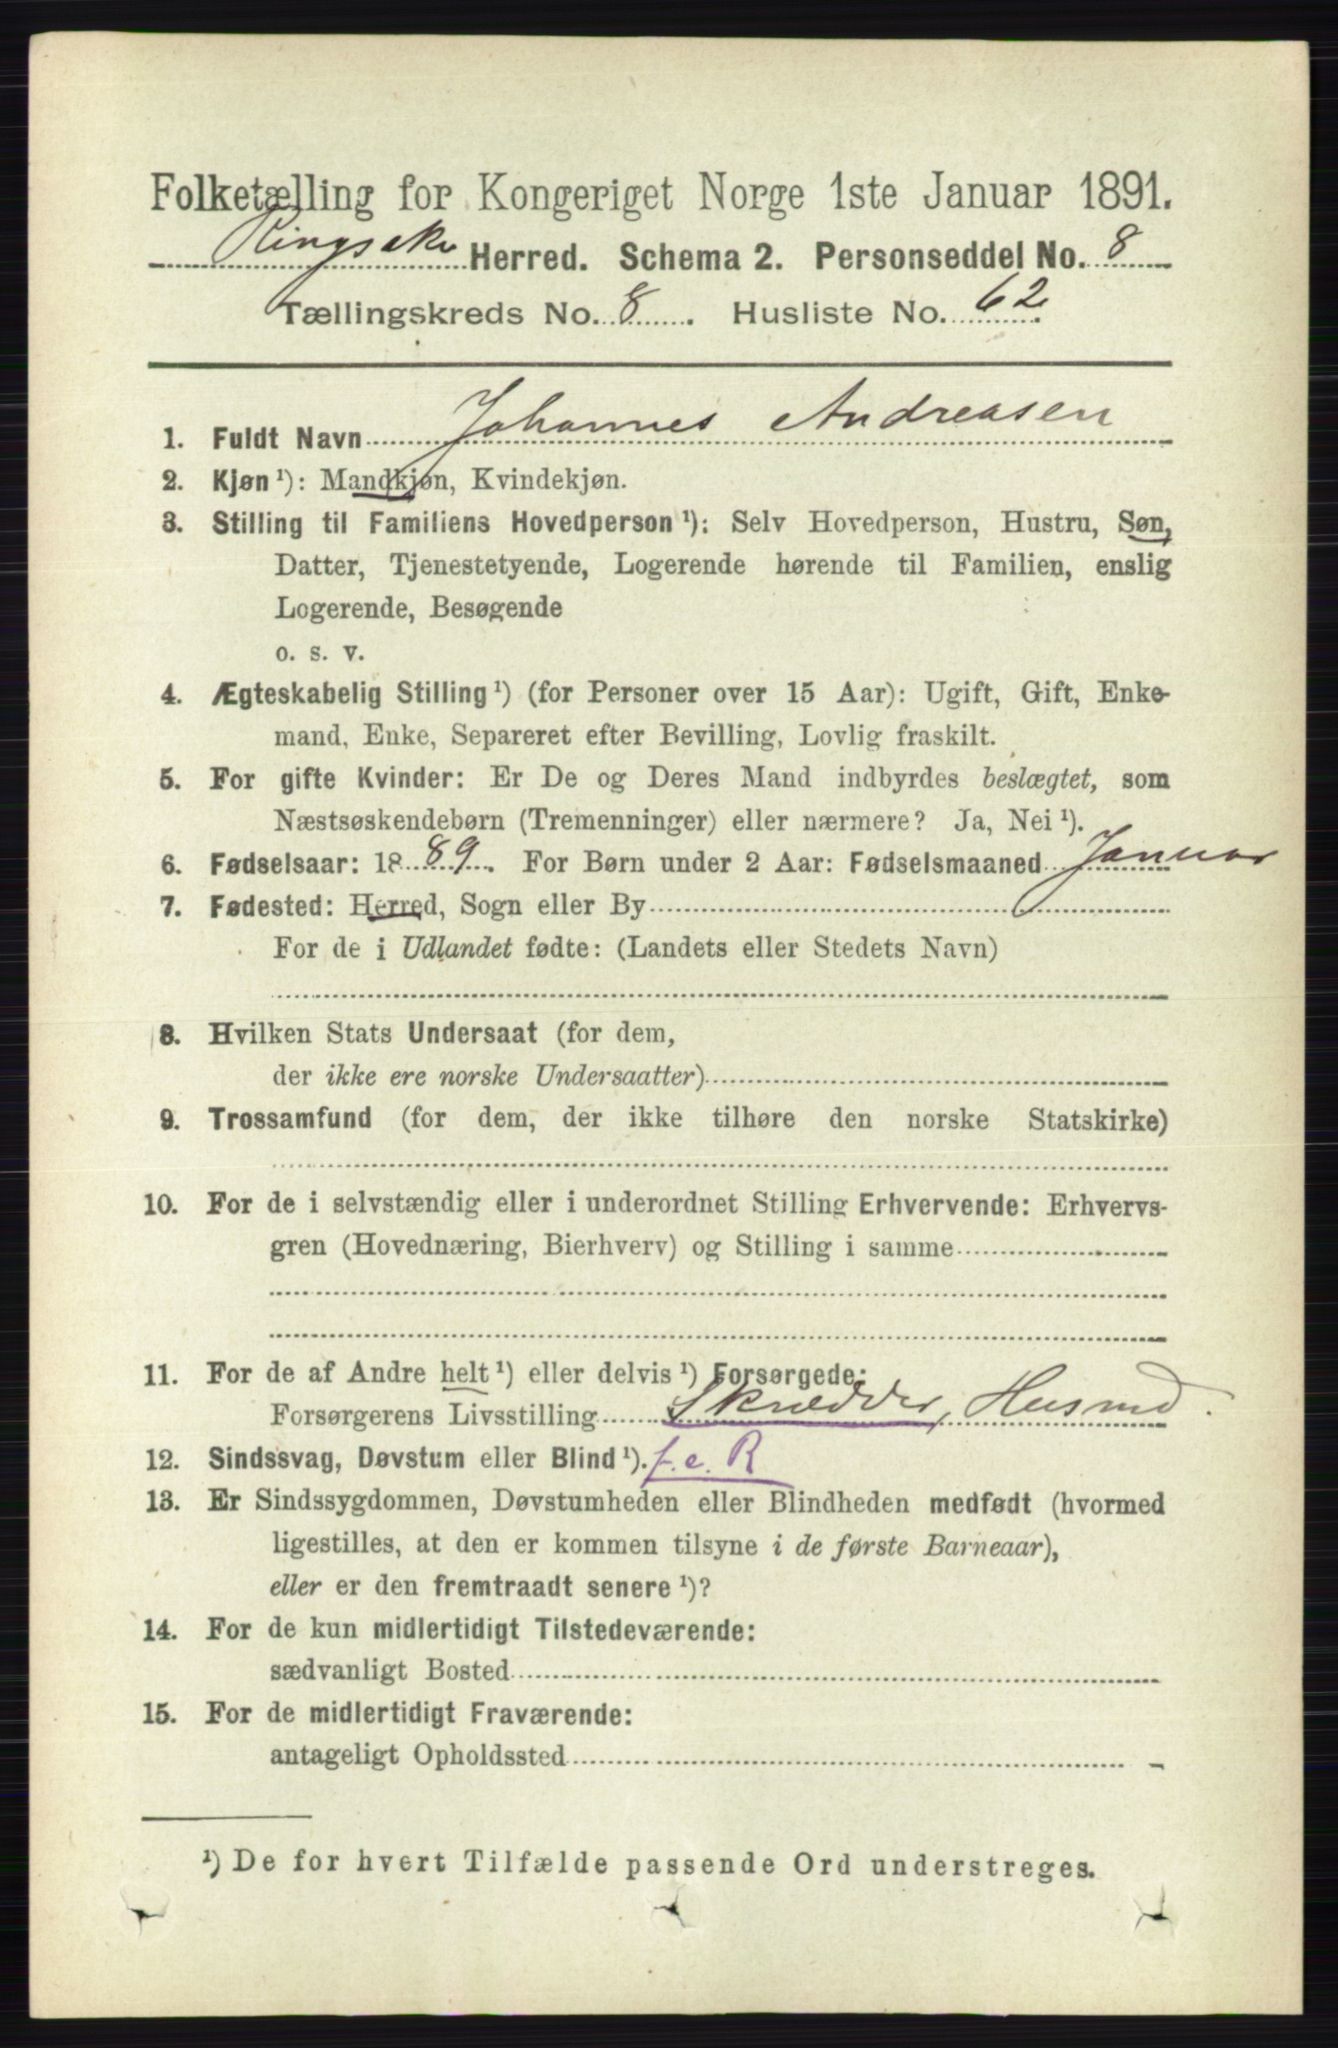 Folketælling for Kongeriget Norge 1ste Januar 1891.
Ringsaker Herred. Schema 2. Personseddel No. 8
Tællingskreds No. 8. Husliste No. 62
1. Fuldt Navn Johannes Andreasen
2. Kjøn ¹): Mandkjøn, Kvindekjøn.
3. Stilling til Familiens Hovedperson ¹): Selv Hovedperson, Hustru, Søn,
Datter, Tjenestetyende, Logerende hørende til Familien, enslig
Logerende, Besøgende
o. s. v.
4. Ægteskabelig Stilling ¹) (for Personer over 15 Aar): Ugift, Gift, Enke-
mand, Enke, Separeret efter Bevilling, Lovlig fraskilt.
5. For gifte Kvinder: Er De og Deres Mand indbyrdes beslægtet, som
Næstsøskendebørn (Tremenninger) eller nærmere? Ja, Nei ¹).
6. Fødselsaar: 1889. For Børn under 2 Aar: Fødselsmaaned Januar
7. Fødested: Herred, Sogn eller By
For de i Udlandet fødte: (Landets eller Stedets Navn)
8. Hvilken Stats Undersaat (for dem,
der ikke ere norske Undersaatter)
9. Trossamfund (for dem, der ikke tilhøre den norske Statskirke)
10. For de i selvstændig eller i underordnet Stilling Erhvervende: Erhvervs-
gren (Hovednæring, Bierhverv) og Stilling i samme
11. For de af Andre helt ¹) eller delvis ¹) Forsørgede:
Forsørgerens Livsstilling Skrædder, Husmd.
12. Sindssvag, Døvstum eller Blind ¹). f.e.R
13. Er Sindssygdommen, Døvstumheden eller Blindheden medfødt (hvormed
ligestilles, at den er kommen tilsyne i de første Barneaar),
eller er den fremtraadt senere ¹)?
14. For de kun midlertidigt Tilstedeværende:
sædvanligt Bosted
15. For de midlertidigt Fraværende:
antageligt Opholdssted
¹) De for hvert Tilfælde passende Ord understreges.